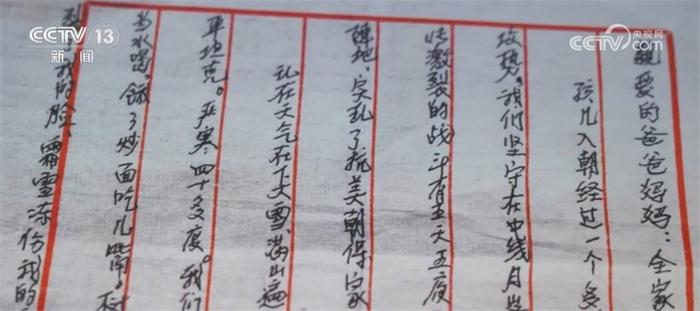 CCTV 13
新闻
CCTV 央视网
com
親爱的爸爸妈妈：全家
孩儿入朝经过一个多
攻势。我们坚守在中线月
激裂的战斗有五天五夜
阵地，了抗美朝保家
在天气在下大雪，满山遍
克。严寒四十多度。我们
当水喝，饿了炒面吃几嘴。
我的脸，霜雪冻份我的